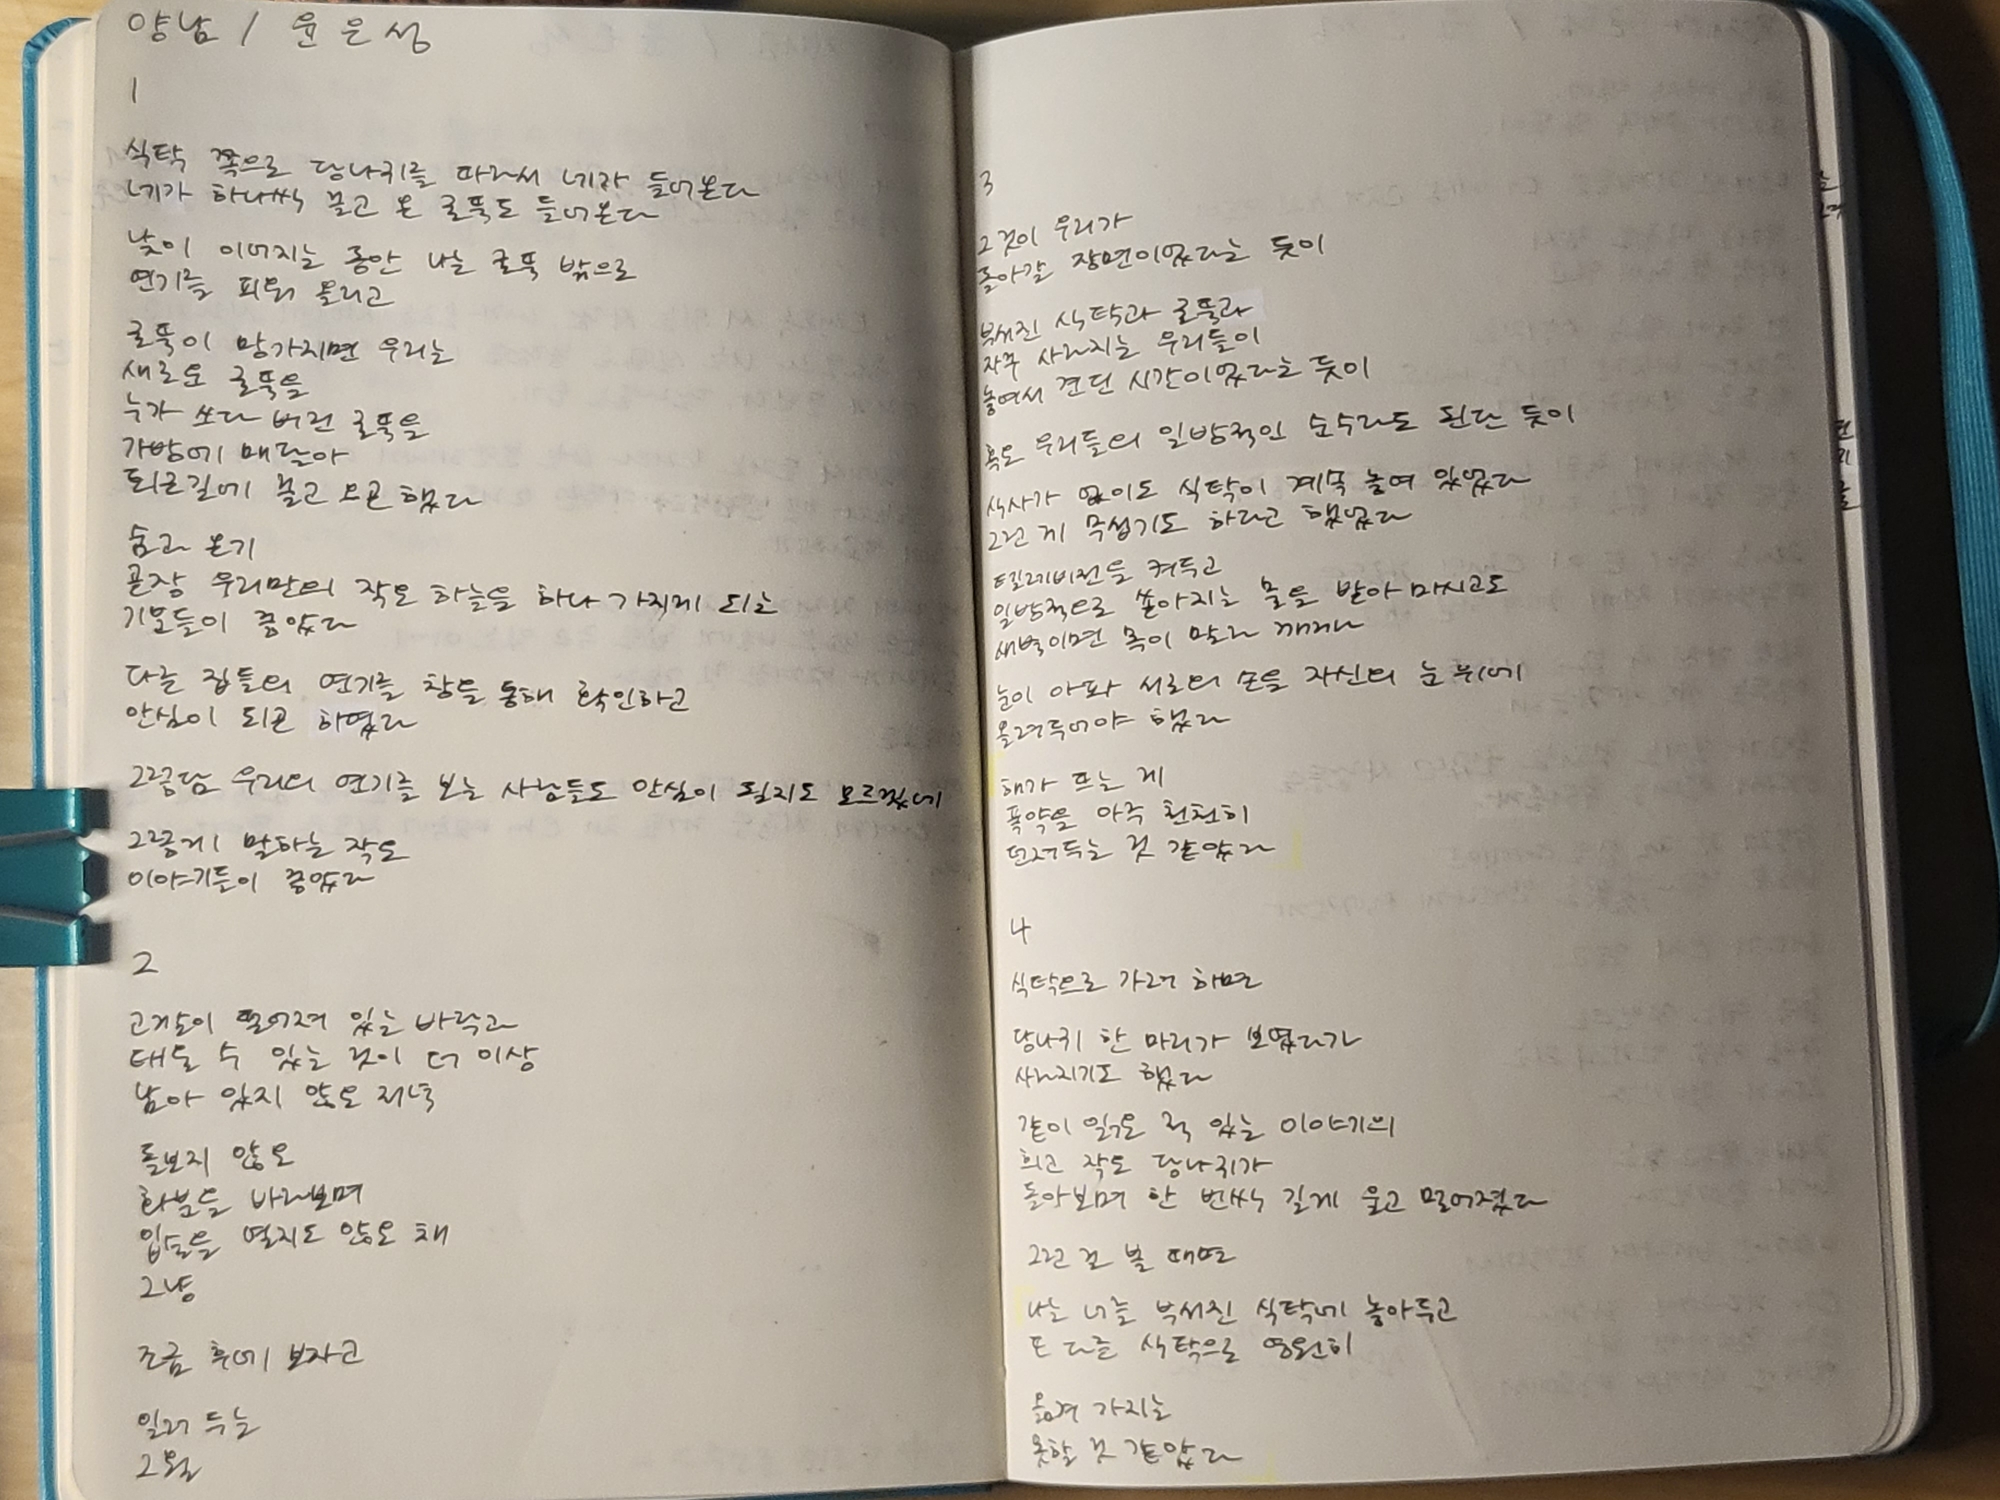 양남 / 윤은성
1
식탁 쪽으로 당나귀를 따라서 네가 들어온다
네가 하나씩 물고 온 굴뚝도 들어온다
낮이 이어지는 동안 나는 굴뚝 밖으로
연기를 피워 올리고
굴뚝이 망가지면 우리는
새로운 굴뚝을
누가 쓰다 버린 굴뚝을
가방에 매달아
퇴근길에 물고 오곤 했다
숨과 온기
곧장 우리만의 작은 하늘을 하나 가지게 되는
기분들이 좋았다
다른 집들의 연기를 창을 통해 확인하고
안심이 되곤 하였다
그럼 우리의 연기를 보는 사람들도 안심이 될지도 모르겠네
그렇게 말하는 작은
이야기들이 좋았다
2
고개가 떨어져 있는 바닥과
태울 수 있는 것이 더 이상
남아 있지 않은 저녁
돌보지 않은
화분을 바라보며
입술을 열지도 않은 채
그냥
조금 후에 보자고
일러 두는
2월
3
그것이 우리가
돌아갈 장면이었다는 듯이
부서진 식탁과 굴뚝과
자주 사라지는 우리들이
놓여서 견딘 시간이었다는 듯이
혹은 우리들의 일방적인 순수라도 된단 듯이
식사가 없이도 식탁이 계속 놓여 있었다
그런 게 무섭기도 하다고 했었다
텔레비전을 켜두고
일방적으로 쏟아지는 물을 받아 마시고도
새벽이면 목이 말라 깨거나
눈이 아파 서로의 손을 자신의 눈 위에
올려두어야 했다
해가 뜨는 게
폭약을 아주 천천히
던져두는 것 같았다
4
식탁으로 가려 하면
당나귀 한 마리가 보였다가
사라지기도 했다
같이 읽은 적 있는 이야기의
희고 작은 당나귀가
돌아보며 한 번씩 길게 울고 멀어졌다
그런 걸 볼 때면
나는 너를 부서진 식탁에 놓아두고
또 다른 식탁으로 영원히
옮겨 가지는
못할 것 같았다